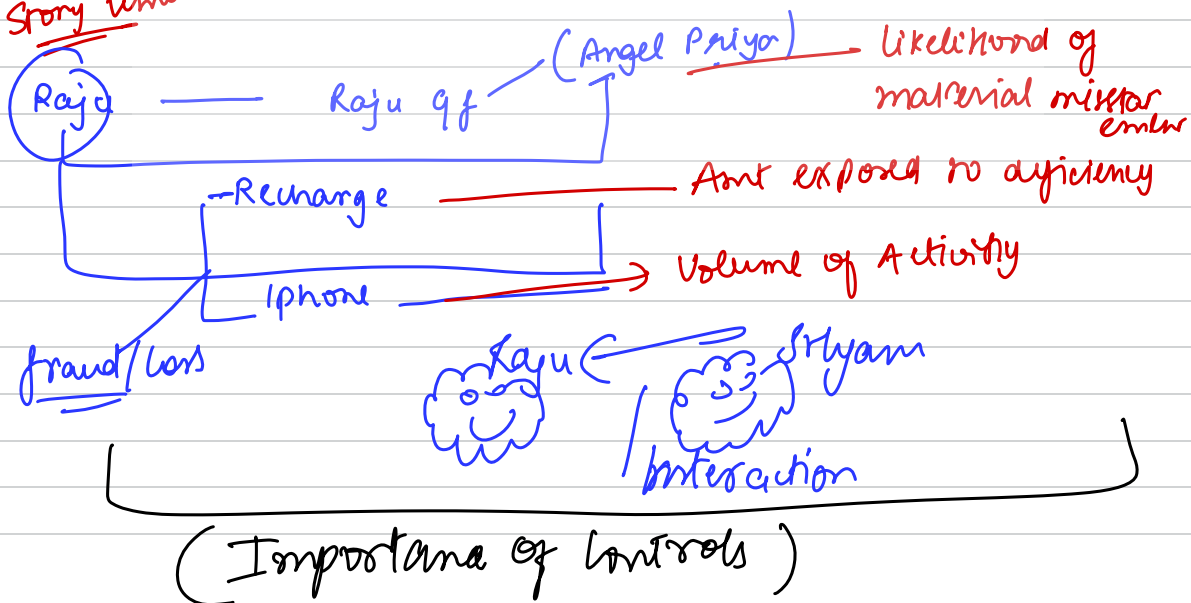 Story time
(Angel Priya) likelihood of
Raju Raju gf material misstatement
Recharge Amt exposed to dificiency
Iphone Volume of Activity
fraud/Loss Raju Shyam
Interaction
(Importance of Controls)